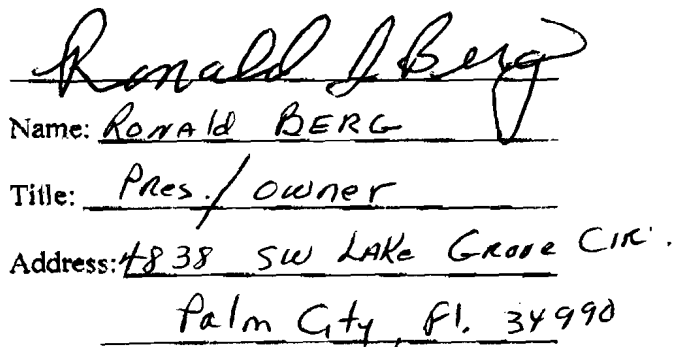 Ronald J Berg
Name: Ronald BERG
Title: Pres./owner
Address: 4838 SW LAKE Grove CIR.
Palm City, Fl. 34990